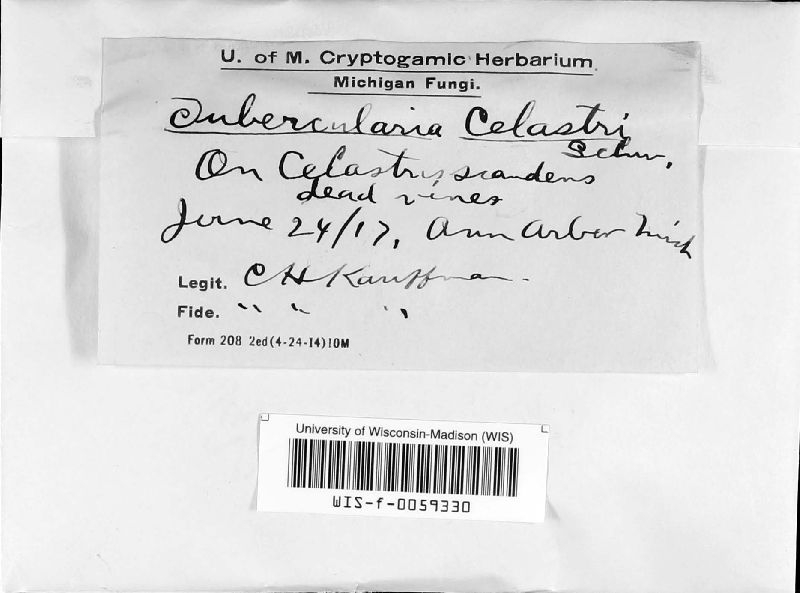 U. of M. Cryptogamic Herbarium.
Michigan Fungi.
Tubercularia Celastri
Schw.
On Celastrus scandens
dead vines
June 24/17, Ann Arbor Mich
Legit. C H Kauffman.
Fide. " " "
Form 208 2ed (4-24-14) 10M
University of Wisconsin-Madison (WIS)
WIS-f-0059330